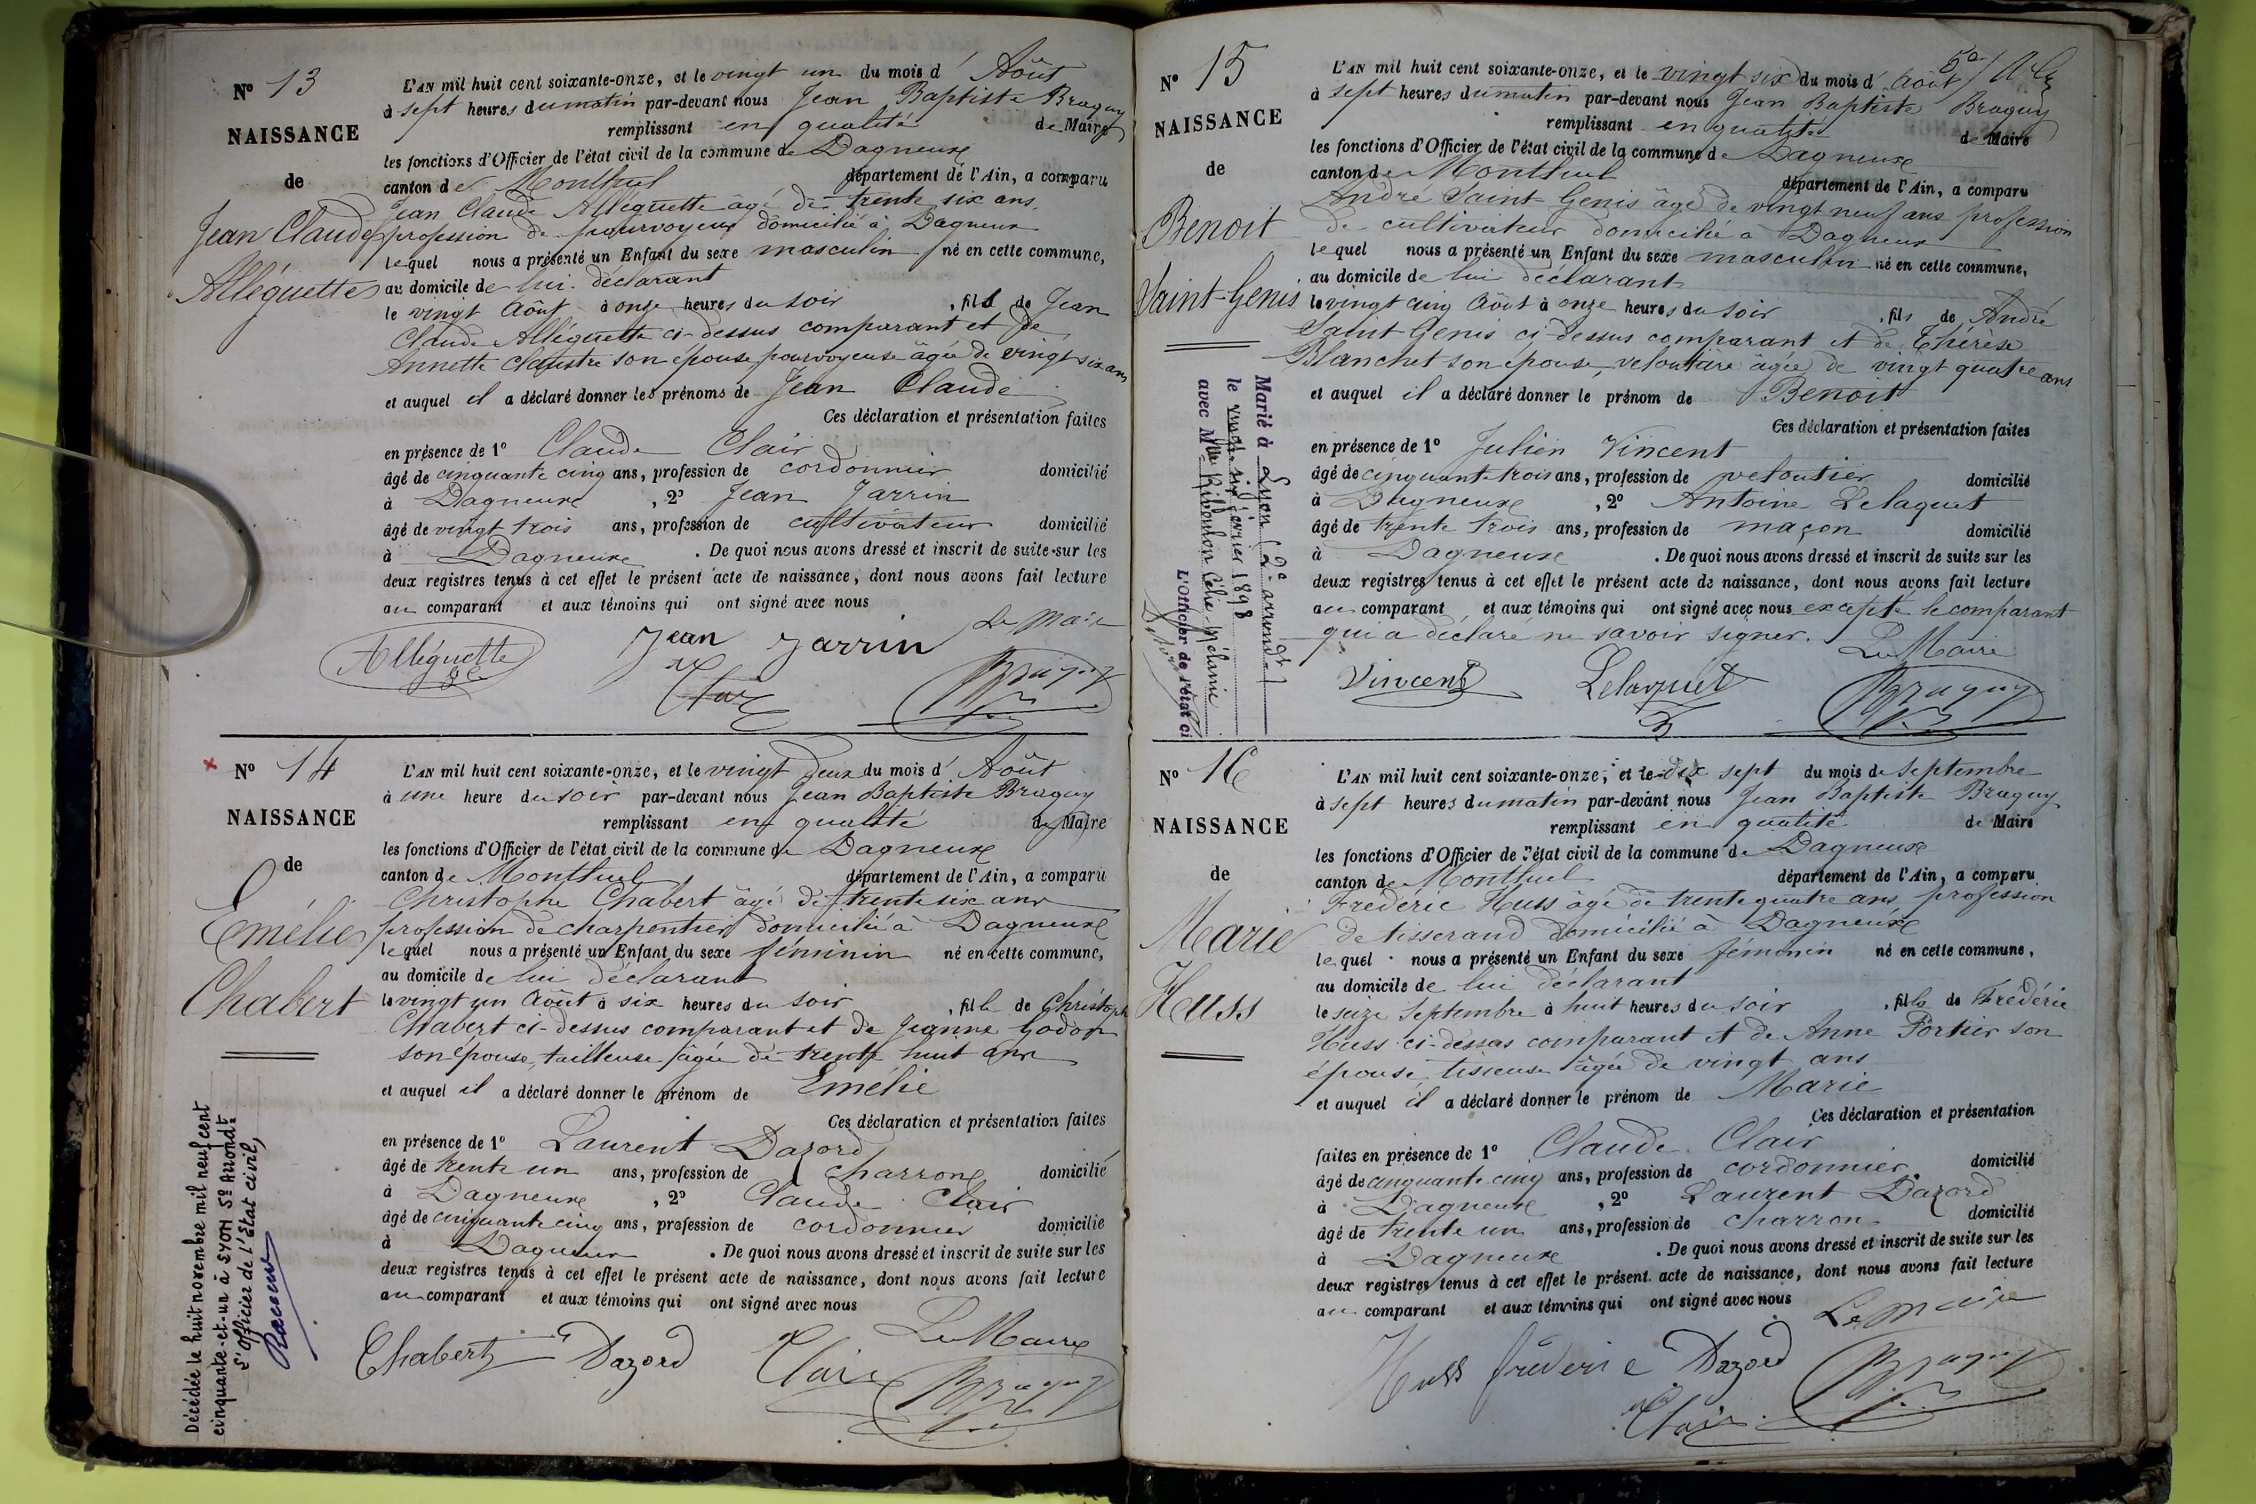 N° 13
NAISSANCE
de
Jean Claude
Alléguette
L'AN mil huit cent soixante-onze, et le vingt un du mois d' Août
à sept heures du matin par-devant nous Jean Baptiste Braguy
remplissant en qualité de Maire
les fonctions d'Officier de l'état civil de la commune de Dagneux
canton de Montluel département de l'Ain, a comparu
Jean Claude Alléguette âgé de trente six ans
profession de pourvoyeur domicilié à Dagneux
lequel nous a présenté un Enfant du sexe masculin né en cette commune,
au domicile de lui déclarant
le vingt Août à onze heures du soir, fils de Jean
Claude Alléguette ci-dessus comparant et de
Annette son épouse pourvoyeuse âgée de vingt six ans
et auquel il a déclaré donner les prénoms de Jean Claude
Ces déclaration et présentation faites
en présence de 1° Claude Clair
âgé de cinquante cinq ans, profession de cordonnier domicilié
à Dagneux, 2° Jean Jarrin
âgé de vingt trois ans, profession de cultivateur domicilié
à Dagneux. De quoi nous avons dressé et inscrit de suite sur les
deux registres tenus à cet effet le présent acte de naissance, dont nous avons fait lecture
au comparant et aux témoins qui ont signé avec nous
Le Maire
Alléguette Jean Jarrin
Clair Braguy
N° 14
NAISSANCE
de
Emélie
Chabert
L'AN mil huit cent soixante-onze, et le vingt deux du mois d' Août
à une heure du soir par-devant nous Jean Baptiste Braguy
remplissant en qualité de Maire
les fonctions d'Officier de l'état civil de la commune de Dagneux
canton de Montluel département de l'Ain, a comparu
Christophe Chabert âgé de trente six ans
profession de charpentier domicilié à Dagneux
lequel nous a présenté un Enfant du sexe féminin né en cette commune,
au domicile de lui déclarant
le vingt un Août à six heures du soir, fille de Christophe
Chabert ci-dessus comparant et de Jeanne
son épouse, tailleuse âgée de trente huit ans
et auquel il a déclaré donner le prénom de Emélie
Ces déclaration et présentation faites
en présence de 1° Laurent Dazord
âgé de trente un ans, profession de charron domicilié
à Dagneux, 2° Claude Clair
âgé de cinquante cinq ans, profession de cordonnier domicilié
à Dagneux. De quoi nous avons dressé et inscrit de suite sur les
deux registres tenus à cet effet le présent acte de naissance, dont nous avons fait lecture
au comparant et aux témoins qui ont signé avec nous
Le Maire
Chabert Dazord Clair Braguy
Décédée le huit novembre mil neuf cent
cinquante-et-un à LYON 5e Arrondt
L'Officier de l'Etat civil,
N° 15
NAISSANCE
de
Benoit
Saint-Genis
L'AN mil huit cent soixante-onze, et le vingt six du mois d' Août
à sept heures du matin par-devant nous Jean Baptiste Braguy
remplissant en qualité de Maire
les fonctions d'Officier de l'état civil de la commune de Dagneux
canton de Montluel département de l'Ain, a comparu
André Saint-Genis âgé de vingt neuf ans profession
de cultivateur domicilié à Dagneux
lequel nous a présenté un Enfant du sexe masculin né en cette commune,
au domicile de lui déclarant
le vingt cinq Août à onze heures du soir, fils de André
Saint-Genis ci-dessus comparant et de Thérèse
Blanchet son épouse veloutière âgée de vingt quatre ans
et auquel il a déclaré donner le prénom de Benoit
Ces déclaration et présentation faites
en présence de 1° Julien Vincent
âgé de cinquante trois ans, profession de veloutier domicilié
à Dagneux, 2° Antoine Lelaquet
âgé de trente trois ans, profession de maçon domicilié
à Dagneux. De quoi nous avons dressé et inscrit de suite sur les
deux registres tenus à cet effet le présent acte de naissance, dont nous avons fait lecture
au comparant et aux témoins qui ont signé avec nous excepté le comparant
qui a déclaré ne savoir signer.
Le Maire
Vincent Lelaquet Braguy
Marié à Lyon (2e arrondt)
le vingt-six février 1898
avec Mlle Célie-Mélanie
L'Officier de l'état ci
N° 16
NAISSANCE
de
Marie
Huss
L'AN mil huit cent soixante-onze, et le dix sept du mois de Septembre
à sept heures du matin par-devant nous Jean Baptiste Braguy
remplissant en qualité de Maire
les fonctions d'Officier de l'état civil de la commune de Dagneux
canton de Montluel département de l'Ain, a comparu
Frédéric Huss âgé de trente quatre ans profession
de tisserand domicilié à Dagneux
lequel nous a présenté un Enfant du sexe féminin né en cette commune,
au domicile de lui déclarant
le seize Septembre à huit heures du soir, fille de Frédéric
Huss ci-dessus comparant et de Anne Fortier son
épouse tisseuse âgée de vingt ans
et auquel il a déclaré donner le prénom de Marie
Ces déclaration et présentation
faites en présence de 1° Claude Clair
âgé de cinquante cinq ans, profession de cordonnier domicilié
à Dagneux, 2° Laurent Dazord
âgé de trente un ans, profession de charron domicilié
à Dagneux. De quoi nous avons dressé et inscrit de suite sur les
deux registres tenus à cet effet le présent acte de naissance, dont nous avons fait lecture
au comparant et aux témoins qui ont signé avec nous
Le Maire
Huss fréderic Dazord Braguy
Clair